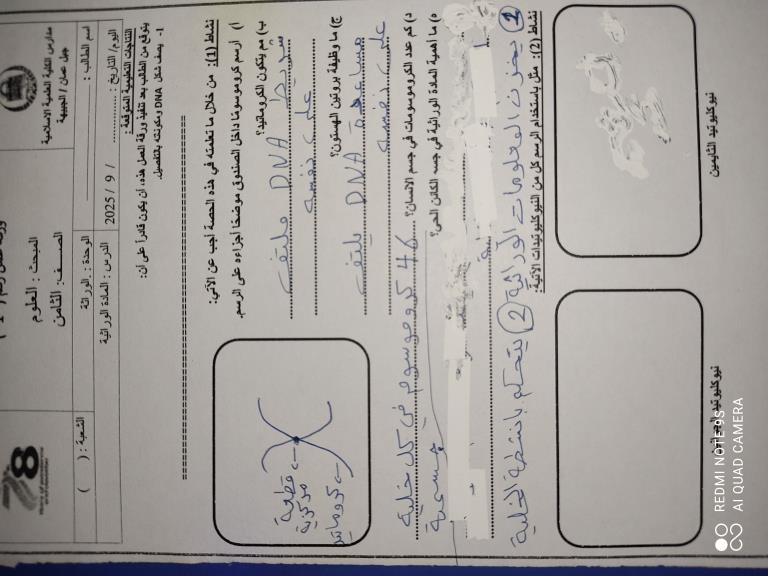 مدارس الكلية العلمية الاسلامية
جبل عمان / الجبيهة
المبحث : العلوم
الصف: الثامن
اسم الطالب :
الشعبة : ( )
اليوم/ التاريخ : ............ / 9 / 2025
الوحدة : الوراثة
الدرس : المادة الوراثية
النتاجات التعليمية المتوقعة :
يتوقع من الطالب بعد تنفيذ ورقة العمل هذه، أن يكون قادراً على أن:
1- يصف شكل DNA ومكوناته بالتفصيل.
نشاط (1): من خلال ما تعلمته في هذه الحصة أجب عن الآتي:
أ) ارسم كروموسوماً داخل الصندوق موضحاً اجزاءه على الرسم.
قطعة مركزية
كروماتيد
ب) مم يتكون الكروماتيد؟
شريط DNA ملتف
على نفسه
ج) ما وظيفة بروتين الهستون؟
مساعدة DNA يلتف
على نفسه
د) كم عدد الكروموسومات في جسم الانسان؟ 46 كروموسوم في كل خلية
جسمية
ه) ما أهمية المادة الوراثية في جسم الكائن الحي؟
1 يخزن المعلومات الوراثية 2 يتحكم بانشطة الخلية
نشاط (2): مثل باستخدام الرسم كل من النيوكليوتيدات الآتية:
نيوكليوتيد الثايمين
نيوكليوتيد الجوانين
REDMI NOTE 9S
AI QUAD CAMERA